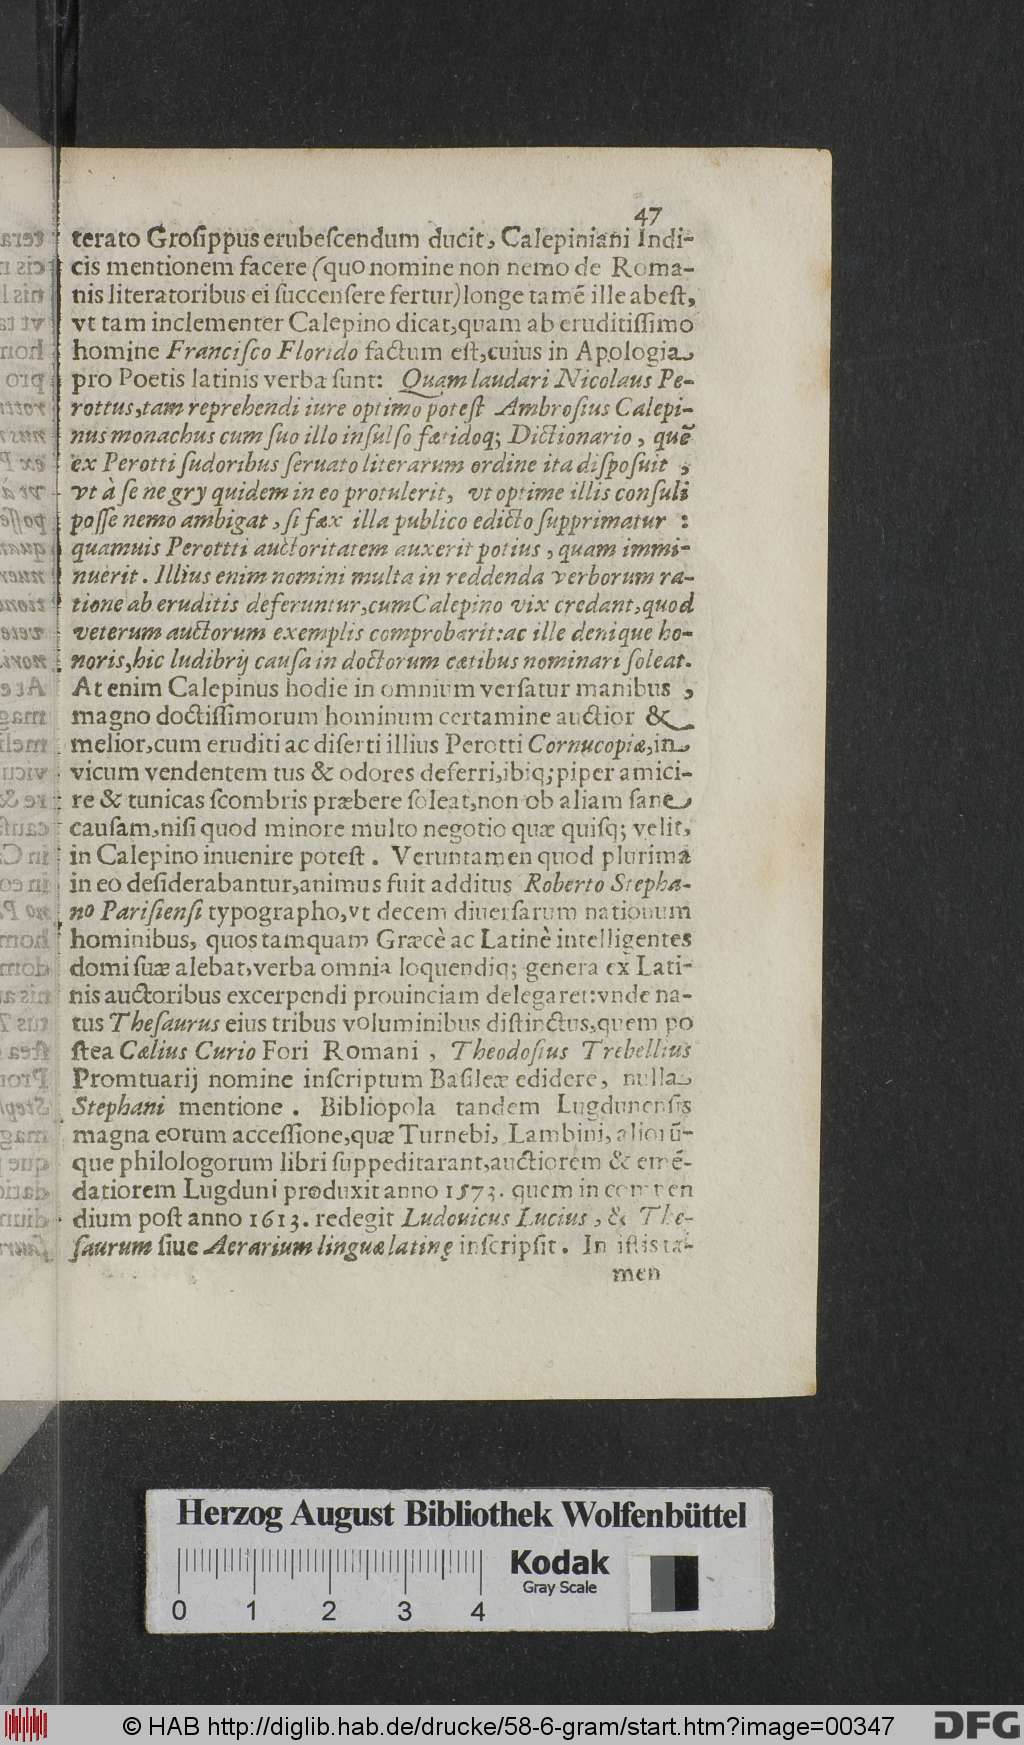 47
terato Groſippus erubeſcendum ducit, Calepiniani Indi-
cis mentionem facere (quo nomine non nemo de Roma-
nis literatoribus ei ſuccenſere fertur) longe tamē ille abeſt,
vt tam inclementer Calepino dicat, quam ab eruditiſſimo
homine Franciſco Florido factum eſt, cuius in Apologia
pro Poetis latinis verba ſunt: Quam laudari Nicolaus Pe-
rottus, tam reprehendi iure optimo poteſt Ambroſius Calepi-
nus monachus cum ſuo illo inſulſo fœtidoq; Dictionario, quē
ex Perotti ſudoribus ſeruato literarum ordine ita diſpoſuit,
vt à ſe ne gry quidem in eo protulerit, vt optime illis conſuli
poſſe nemo ambigat, ſi fæx illa publico edicto ſupprimatur :
quamuis Perottti auctoritatem auxerit potius, quam immi-
nuerit. Illius enim nomini multa in reddenda verborum ra-
tione ab eruditis deferuntur, cum Calepino vix credant, quod
veterum auctorum exemplis comprobarit: ac ille denique ho-
noris, hic ludibrij cauſa in doctorum cœtibus nominari ſoleat.
At enim Calepinus hodie in omnium verſatur manibus,
magno doctiſſimorum hominum certamine auctior &
melior, cum eruditi ac diſerti illius Perotti Cornucopiæ, in
vicum vendentem tus & odores deferri, ibiq; piper amici-
re & tunicas ſcombris præbere ſoleat, non ob aliam ſane
cauſam, niſi quod minore multo negotio quæ quiſq; velit,
in Calepino inuenire poteſt. Veruntamen quod plurima
in eo deſiderabantur, animus fuit additus Roberto Stepha-
no Pariſienſi typographo, vt decem diuerſarum nationum
hominibus, quos tamquam Græcè ac Latinè intelligentes
domi ſuæ alebat, verba omnia loquendiq; genera ex Lati-
nis auctoribus excerpendi prouinciam delegaret: vnde na-
tus Theſaurus eius tribus voluminibus diſtinctus, quem po
ſtea Cælius Curio Fori Romani, Theodoſius Trebellius
Promtuarij nomine inſcriptum Baſileæ edidere, nulla
Stephani mentione. Bibliopola tandem Lugdunenſis
magna eorum acceſſione, quæ Turnebi, Lambini, aliorū-
que philologorum libri ſuppeditarant, auctiorem & emē-
datiorem Lugduni produxit anno 1573. quem in compen
dium poſt anno 1613. redegit Ludouicus Lucius, & The-
ſaurum ſiue Aerarium linguæ latinę inſcripſit. In iſtis ta-
men
Herzog August Bibliothek Wolfenbüttel
Kodak
Gray Scale
0 1 2 3 4
© HAB http://diglib.hab.de/drucke/58-6-gram/start.htm?image=00347
DFG